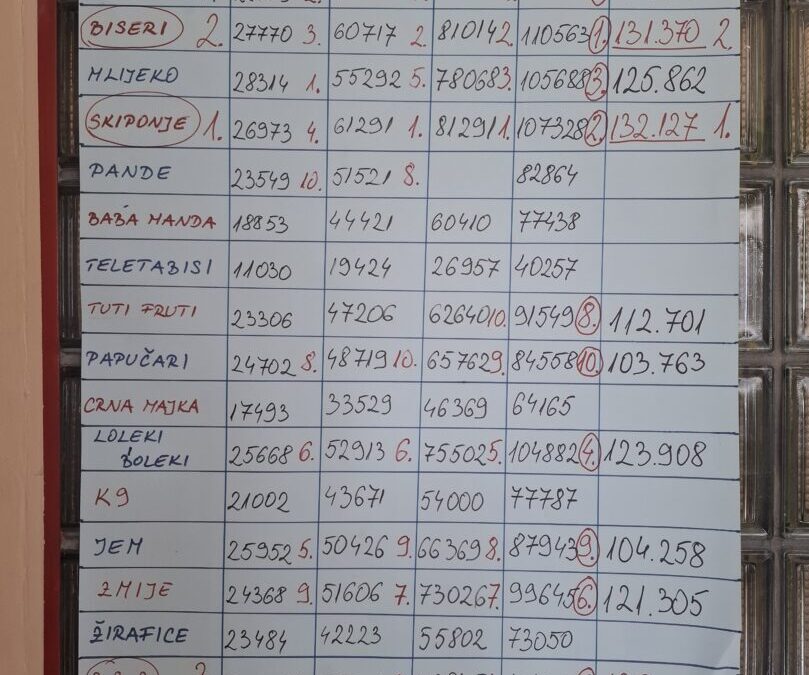 BISERI 2. 27770 3. 60717 2. 81014 2. 110563 1. 131.370 2.
MLIJEKO 28314 1. 55292 5. 78068 3. 105688 3. 125.862
SKIPONJE 1. 26973 4. 61291 1. 81291 1. 107328 2. 132.127 1.
PANDE 23549 10. 51521 8. 82864
BABA MANDA 18853 44421 60410 77438
TELETABISI 11030 19424 26957 40257
TUTI FRUTI 23306 47206 62640 10. 91549 8. 112.701
PAPUČARI 24702 8. 48719 10. 65762 9. 84558 10. 103.763
CRNA MAJKA 17493 33529 46369 64165
LOLEKI
BOLEKI 25668 6. 52913 6. 75502 5. 104882 4. 123.908
K9 21002 43671 54000 77787
JEM 25952 5. 50426 9. 66369 8. 87943 9. 104.258
ZMIJE 24368 9. 51606 7. 73026 7. 99645 6. 121.305
ŽIRAFICE 23484 42223 55802 73050